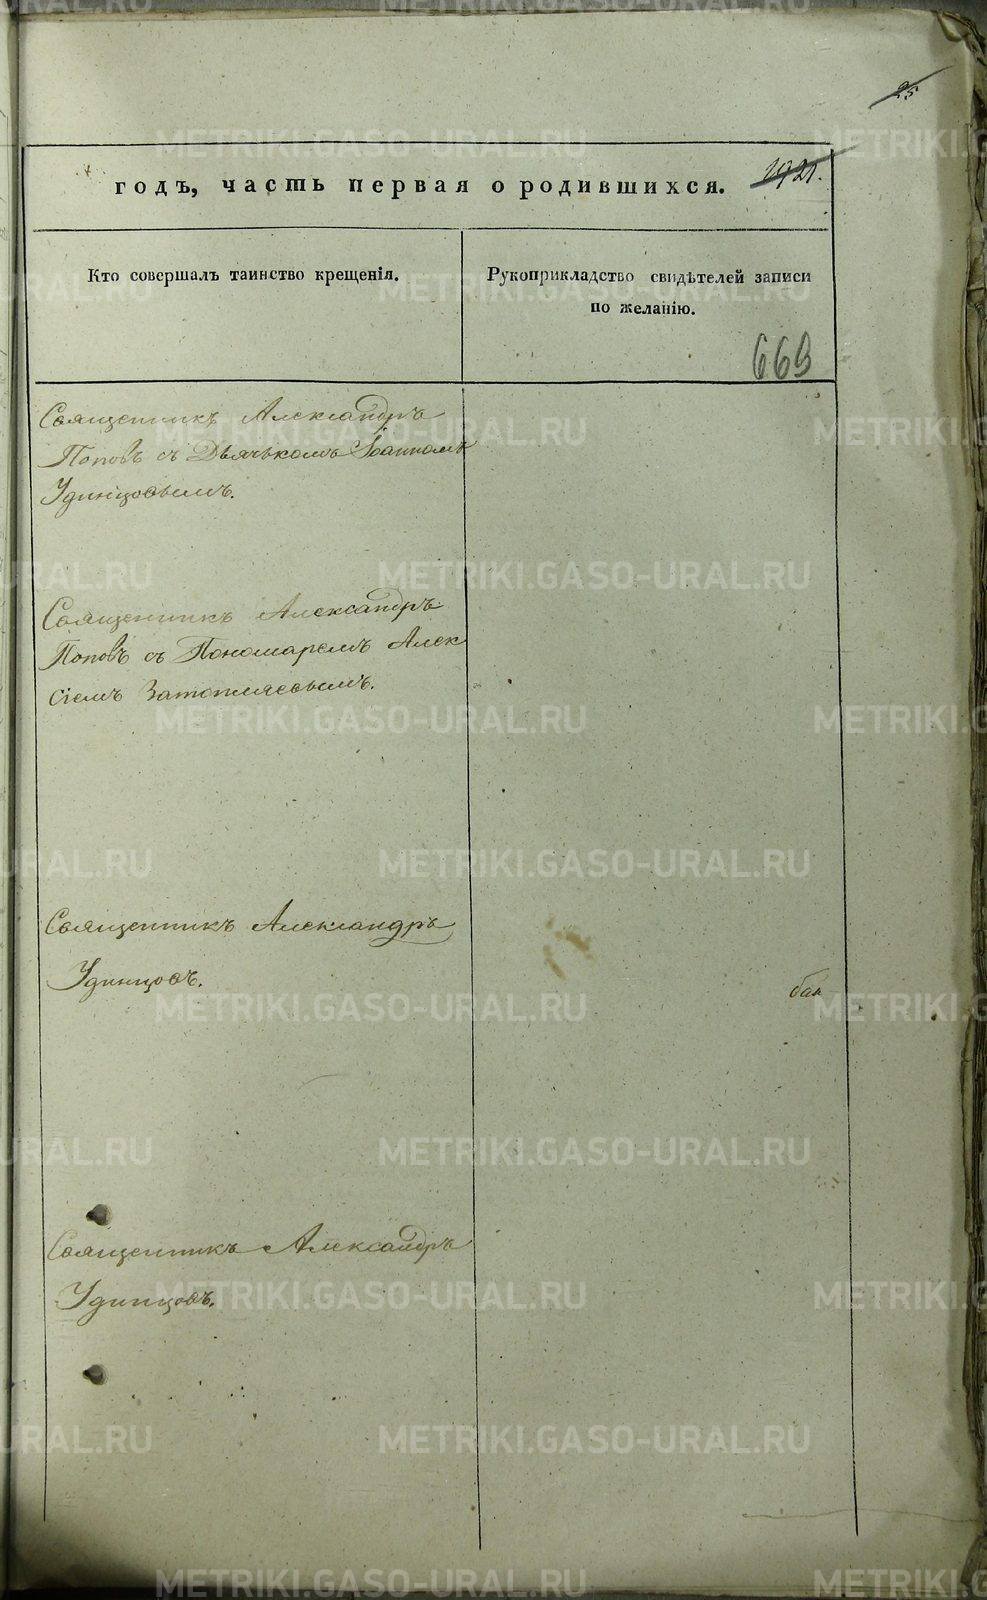 25
годъ, часть первая о родившихся.
Кто совершалъ таинство крещенія.
Рукоприкладство свидѣтелей записи
по желанію.
669
Священникъ Александръ
Поповъ съ Дьячькомъ Іоанномъ
Удинцовымъ.
Священникъ Александръ
Поповъ съ Пономаремъ Алек
сіемъ Затопляевымъ.
Священникъ Александръ
Удинцовъ.
Священникъ Александръ
Удинцовъ.
METRIKI.GASO-URAL.RU